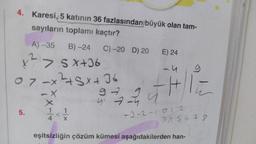 4. Karesi, 5 katının 36 fazlasından büyük olan tam-
sayıların toplamı kaçtır?
A) -35 B) -24 C) -20 D) 20 E) 24
x² > 5x+36
0 > -x²+5x+36
-x
x
-4 9
9 -4
-3 -2 -1 0 1 2
5. 1/4 < 1/x
eşitsizliğin çözüm kümesi aşağıdakilerden han-